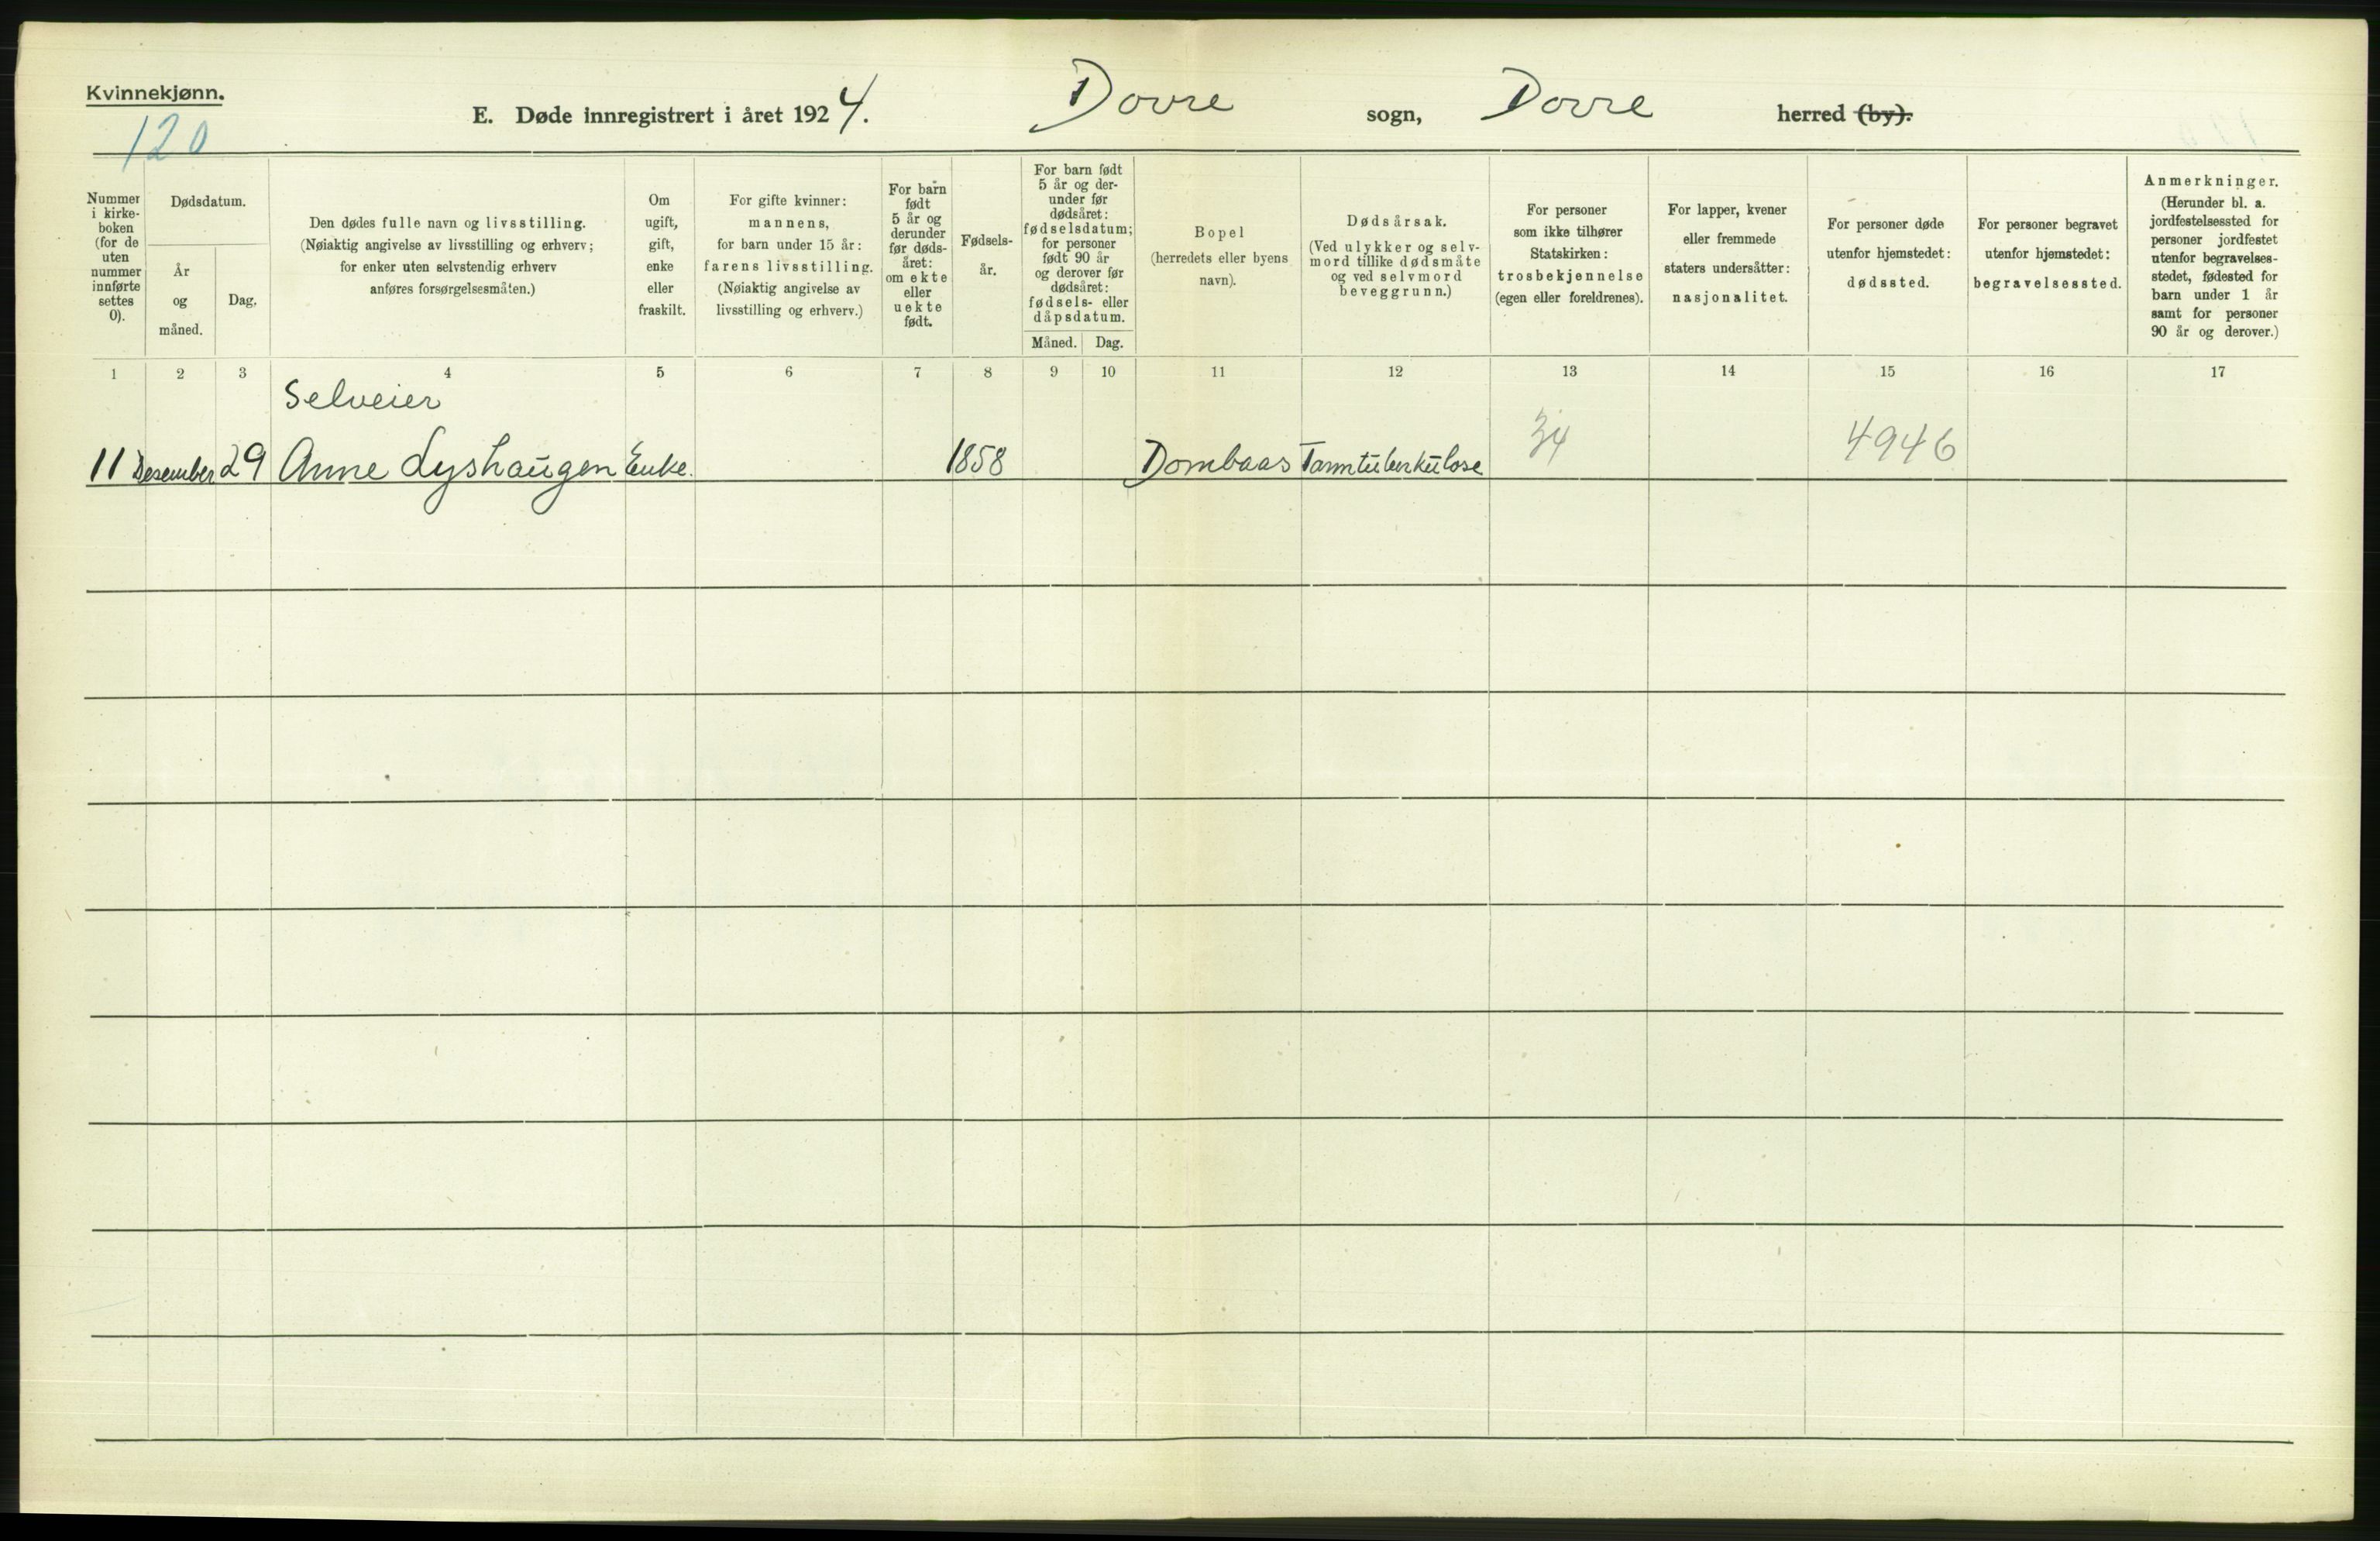 Kvinnekjønn.
120
E. Døde innregistrert i året 1924. Dovre sogn, Dovre herred (by).
Nummer i kirke- boken (for de uten nummer innførte settes 0).
Dødsdatum.
År og måned.
Dag.
Den dødes fulle navn og livsstilling.
(Nøiaktig angivelse av livsstilling og erhverv;
for enker uten selvstendig erhverv
anføres forsørgelsesmåten.)
Om
ugift,
gift,
enke
eller
fraskilt.
For gifte kvinner:
mannens,
for barn under 15 år:
farens livsstilling.
(Nøiaktig angivelse av
livsstilling og erhverv.)
For barn
født
5 år og
derunder
før døds-
året:
om ekte
eller
uekte
født.
Fødsels-
år.
For barn født
5 år og der-
under før
dødsåret:
fødselsdatum;
for personer
født 90 år
og derover før
dødsåret:
fødsels- eller
dåpsdatum.
Måned. Dag.
Bopel
(herredets eller byens
navn).
Dødsårsak.
(Ved ulykker og selv-
mord tillike dødsmåte
og ved selvmord
beveggrunn.)
For personer
som ikke tilhører
Statskirken:
trosbekjennelse
(egen eller foreldrenes).
For lapper, kvener
eller fremmede
staters undersåtter:
nasjonalitet.
For personer døde
utenfor hjemstedet:
dødssted.
For personer begravet
utenfor hjemstedet:
begravelsessted.
Anmerkninger.
(Herunder bl. a.
jordfestelsessted for
personer jordfestet
utenfor begravelses-
stedet, fødested for
barn under 1 år
samt for personer
90 år og derover.)
1 2 3 4 5 6 7 8 9 10 11 12 13 14 15 16 17
Selveier
11 Desember 29 Anne Lyshaugen Enke. 1858 Dombaas Tarmtuberkulose 34 4946